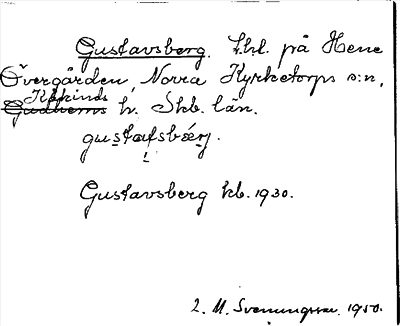 Gustavsberg. t.hl. på Hene
Övergården, Norra Kyrketorps s:n,
Kåkinds
Gudhems h. Skb. län.
gustafsbærj.
Gustavsberg kb. 1930.
L. M. Svenungsson. 1950.